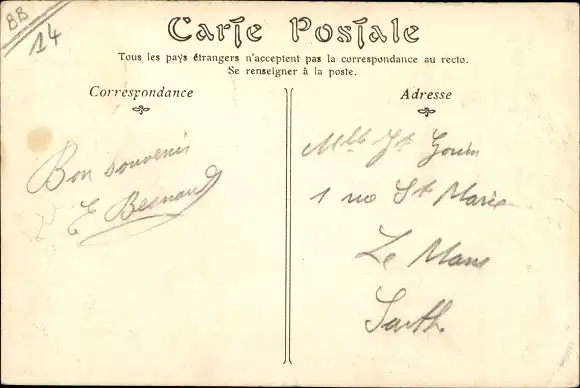 BB
14
Carte Postale
Tous les pays étrangers n'acceptent pas la correspondance au recto.
Se renseigner à la poste.
Correspondance
Bon souvenir
E Besnard
Adresse
Mlle Gouin
1 rue St Marie
Le Mans
Sarth